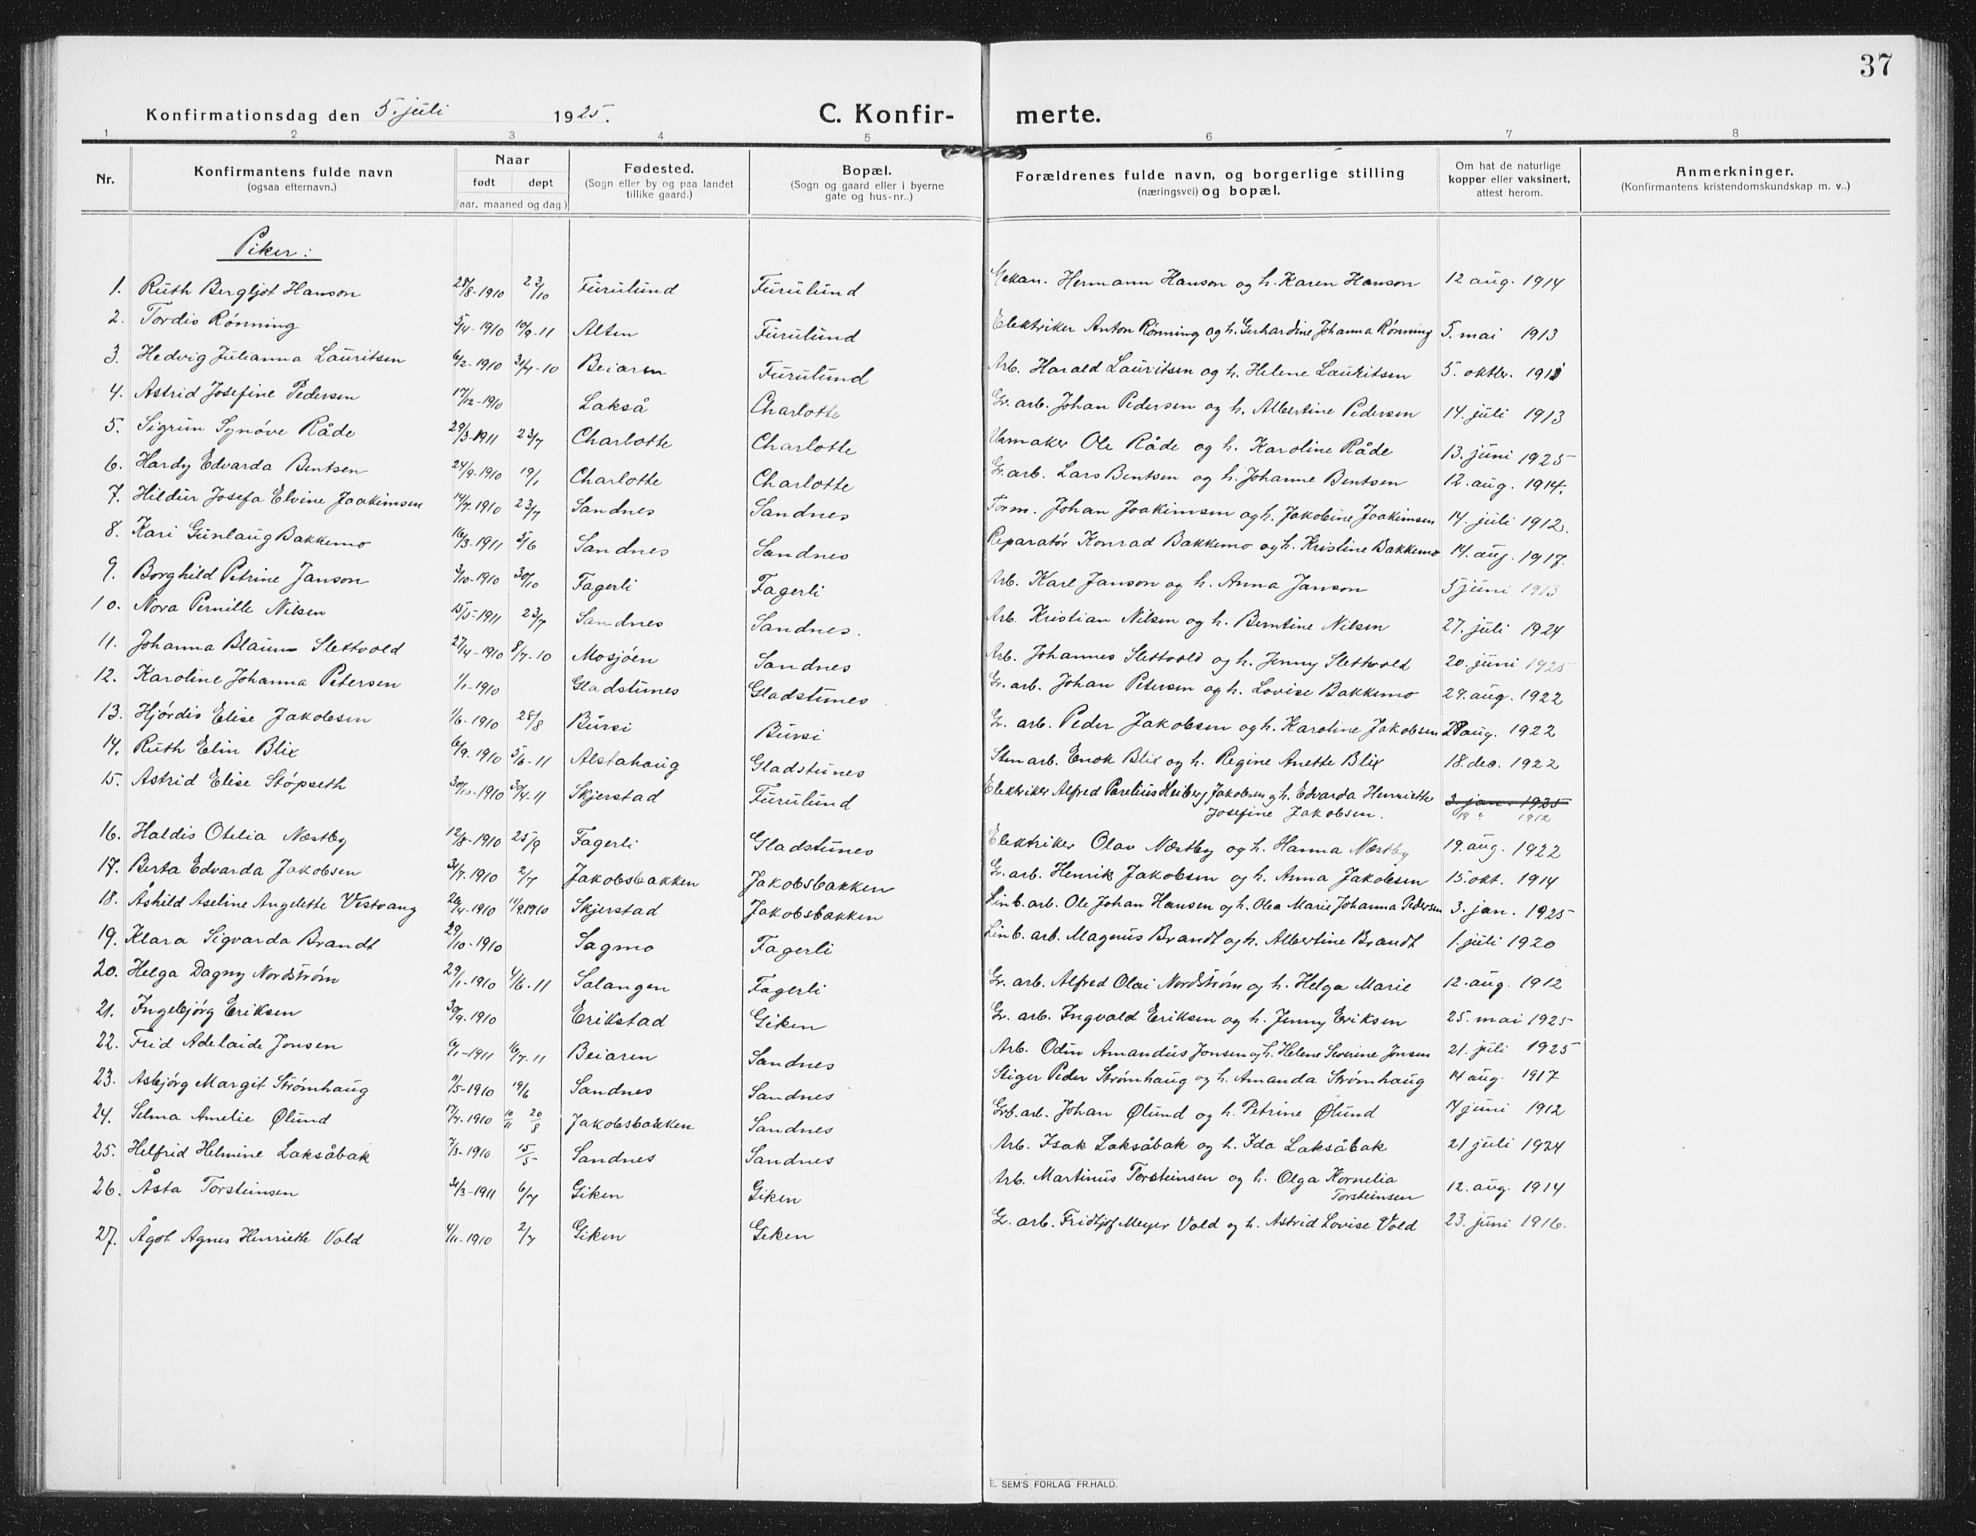 37
Konfirmationsdag den 5. juli 1925. C. Konfir- merte.
1 2 3 4 5 6 7 8
Nr. Konfirmantens fulde navn (ogsaa efternavn.) Naar født døpt (aar, maaned og dag.) Fødested. (Sogn eller by og paa landet tillike gaard.) Bopæl. (Sogn og gaard eller i byerne gate og hus-nr..) Forældrenes fulde navn, og borgerlige stilling (næringsvei) og bopæl. Om hat de naturlige kopper eller vaksinert, attest herom. Anmerkninger. (Konfirmantens kristendomskundskap m. v..)
Piker:
1. Ruth Bergljot Hanson 28/8-1910 23/10 Furulund Furulund Mekan. Hermann Hanson og h. Karen Hanson 12 aug. 1914
2. Tordis Rønning 5/4-1910 10/9-11 Alten Furulund Elektriker Anton Rønning og h. Gerhardine Johanna Rønning 5. mai 1913
3. Hedvig Julianna Lauritsen 6/2-1910 31/4-10 Beiaren Furulund Arb. Harald Lauritsen og h. Helene Lauritsen 5. oktbr.
4. Astrid Josefine Pedersen 17/12-1910 Lakså Charlotte Gr. arb. Johan Pedersen og h. Albertine Pedersen 14. juli 1913
5. Sigrun Synøve Råde 29/3-1911 23/7 Charlotte Charlotte Urmaker Ole Råde og h. Karoline Råde 13. juni 1925
6. Hardy Edvarda Bentsen 24/9-1910 19/1 Charlotte Charlotte Gr. arb. Lars Bentsen og h. Johanne Bentsen 12. aug. 1914.
7. Hildur Josefa Elvine Joakimsen 14/7.1910 23/7 Sandnes Sandnes Form. Johan Joakimsen og h. Jakobine Joakimsen 14. juli 1912.
8. Kari Gunlaug Bakkemo 16/3-1911 5/6 Sandnes Sandnes Reparatør Konrad Bakkemo og h. Kristine Bakkemo 14. aug. 1917.
9. Borghild Petrine Janson 3/10-1910 30/10 Fagerli Fagerli Arb. Karl Janson og h. Anna Janson 5 juni 1913
10. Nora Pernille Nilsen 15/5-1911 23/7 Sandnes Sandnes. Arb. Kristian Nilsen og h. Berntine Nilsen 27. juli 1924
11. Johanna Slettvold 27/4-1910 8/7.10 Mosjøen Sandnes Arb. Johannes Slettvold og h. Jenny Slettvold 20. juni 1925
12. Karoline Johanna Petersen 1/1-1910 Gladstunes Gladstunes Gr. arb. Johan Petersen og h. Lovise Bakkemo 29. aug. 1922
13. Hjørdis Elise Jakobsen 1/6-1910 28/8 Bursi Bursi Gr. arb. Peder Jakobsen og h. Karoline Jakobsen aug. 1922
14. Ruth Elin Blix 6/9.1910 5/6-11 Alstahaug Gladstunes Sten arb. Enok Blix og h. Regine Anette Blix 18. des. 1922
15. Astrid Elise Støpseth 30/10-1910 30/4.11 Skjerstad Furulund Elektriker Alfred Parelius Heiberg Jakobsen og h. Edvarda Henriette 3. jan. 1925
Josefine Jakobsen. 1912
16. Haldis Otelia Næstby 12/8-1910 25/9 Fagerli Gladstunes Elektriker Olav Næstby og h. Hanna Næstby 19. aug. 1922
17. Berta Edvarda Jakobsen 31/7.1910 2/7 Jakobsbakken Jakobsbakken Gr. arb. Henrik Jakobsen og h. Anna Jakobsen 15. okt. 1914
18. Åshild Aseline Angelette Vestvang 26/4-1910 11/9.1910 Skjerstad Jakobsbakken Linb. arb. Ole Johan Hansen og h. Olea Marie Johanna Pedersen 3. jan. 1925
19. Klara Sigvarda Brandt 29/10-1910 Sagmo Fagerli Linb. arb. Magnus Brandt og h. Albertine Brandt 1. juli 1920
20. Helga Dagny Nordstrøm 29/1-1910 4/6-11 Salangen Fagerli Gr. arb. Alfred Olai Nordstrøm og h. Helga Marie 12. aug. 1912
21. Ingebjørg Eriksen 30/9.1910 Erikstad Giken Gr. arb. Ingvald Eriksen og h. Jenny Eriksen 25. mai 1925
22. Frid Adelaide Jonsen 6/1-1911 16/7.11 Beiaren Sandnes Arb. Odin Amandus Jonsen og h. Helene Severine Jonsen 21. juli 1925
23. Asbjørg Margit Strømhaug 11/5-1910 19/6 Sandnes Sandnes Stiger Peder Strømhaug og h. Amanda Strømhaug 14 aug. 1917
24. Selma Amelie Ølund 17/7.1910 10/11 20/8 Jakobsbakken Sandnes Grb. arb. Johan Ølund og h. Petrine Ølund 4 juni 1912
25. Helfrid Helmine Laksåbak 7/3-1910 15/5 Sandnes Sandnes Arb. Isak Laksåbak og h. Ida Laksåbak 21 juli 1924
26. Åsta Torsteinsen 31/3-1911 6/7 Giken Giken Arb. Martinus Torsteinsen og h. Olga Kornelia Torsteinsen 12. aug. 1914
27. Ågot Agnes Henriette Vold 4/11-1910 2/7 Giken Giken Gr. arb. Fridtjof Meyer Vold og h. Astrid Lovise Vold 23. juni 1916.
E. SEM'S FORLAG FR.HALD.